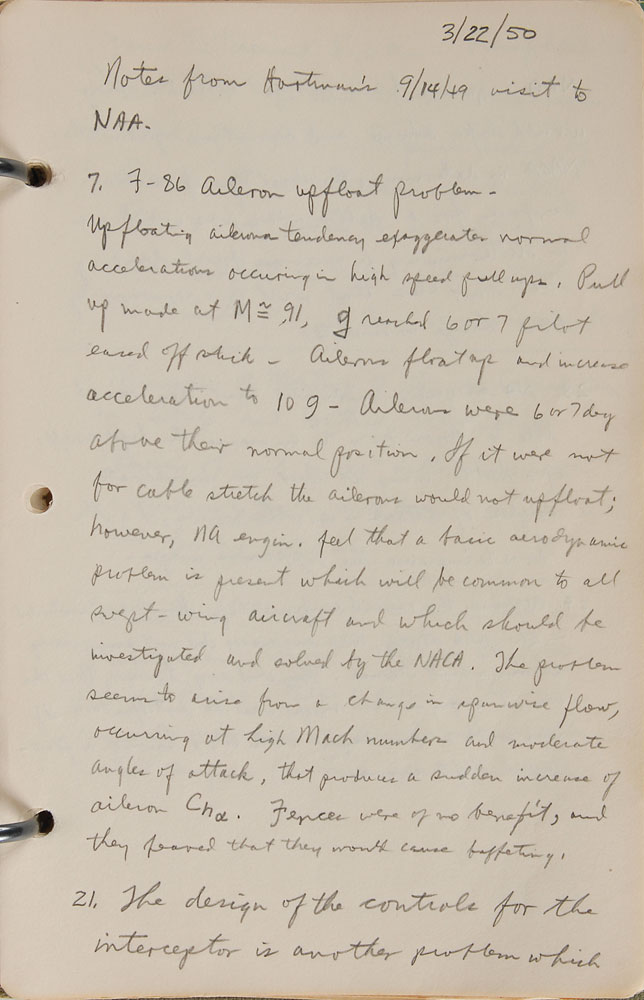 3/22/50
Notes from Hartman's 9/14/49 visit to
NAA.
7. F-86 Aileron upfloat problem -
Upfloating aileron tendency exaggerates normal
accelerations occuring in high speed pull ups. Pull
up made at M ≅ .91, g reached 6 or 7 pilot
eased off stick - Ailerons float up and increase
acceleration to 10 g - Ailerons were 6 or 7 deg
above their normal position. If it were not
for cable stretch the ailerons would not upfloat;
however, NA engin. feel that a basic aerodynamic
problem is present which will be common to all
swept-wing aircraft and which should be
investigated and solved by the NACA. The problem
seems to arise from a change in spanwise flow,
occurring at high Mach numbers and moderate
angles of attack, that produces a sudden increase of
aileron Chα. Fences were of no benefit, and
they feared that they would cause buffeting.
21. The design of the controls for the
interceptor is another problem which